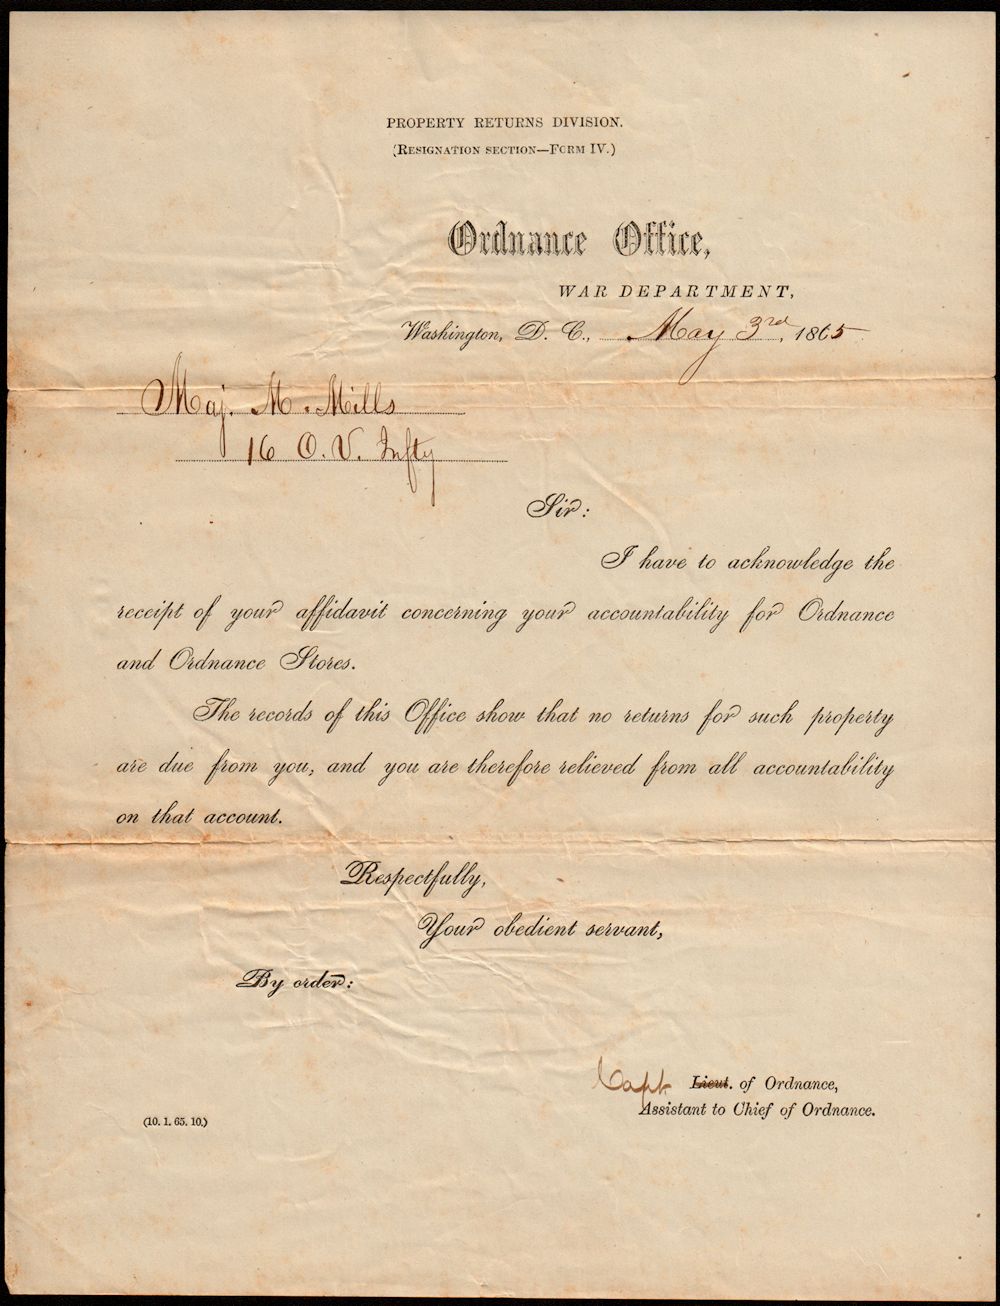 PROPERTY RETURNS DIVISION.
(RESIGNATION SECTION—FORM IV.)
Ordnance Office,
WAR DEPARTMENT,
Washington, D. C., May 3rd, 1865
Maj. M. Mills
16 O. V. Infty
Sir:
I have to acknowledge the
receipt of your affidavit concerning your accountability for Ordnance
and Ordnance Stores.
The records of this Office show that no returns for such property
are due from you, and you are therefore relieved from all accountability
on that account.
Respectfully,
Your obedient servant,
By order:
Capt Lieut. of Ordnance,
Assistant to Chief of Ordnance.
(10. 1. 65. 10.)